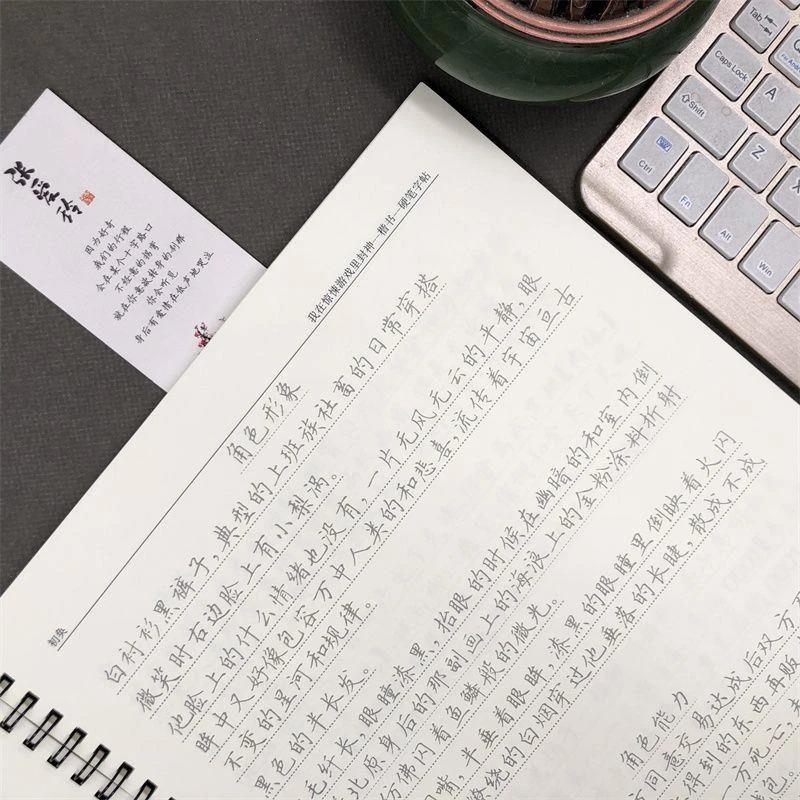 张爱玲
因为好奇
我们的行程
会在某个十字路口
不经意的拐弯
就在你意欲转身的刹那
你会听见
身后有爱情在低声地哭泣
我在惊悚游戏里封神—楷书—硬笔字帖
初奕
角色形象
白衬衫黑裤子，典型的上班族社畜的日常穿搭
微笑时右边脸上有小梨涡。
他脸上的什么情绪也没有，一片无风无云的平静，眼
眸中又好像包容万中人类的和悲喜，流传着宇宙亘古
不变的星河和规律。
黑色的半长发。
毛纤长，眼瞳漆黑，抬眼的时候在幽暗的和室内倒
北原身后的那副画上的海浪上的金粉涂料折射
仿佛闪着鱼鳞般的微光。
嘴，半垂着眼眸，漆黑的眼瞳里倒映着火闪
缭绕的白烟穿过他垂落的长睫，散成不成
角色能力
方同意交易达成后双方
得到的东西再贩
一方死亡，
包。
Tab
Caps Lock
A
Shift
Z
Ctrl
Fn
Alt
Win